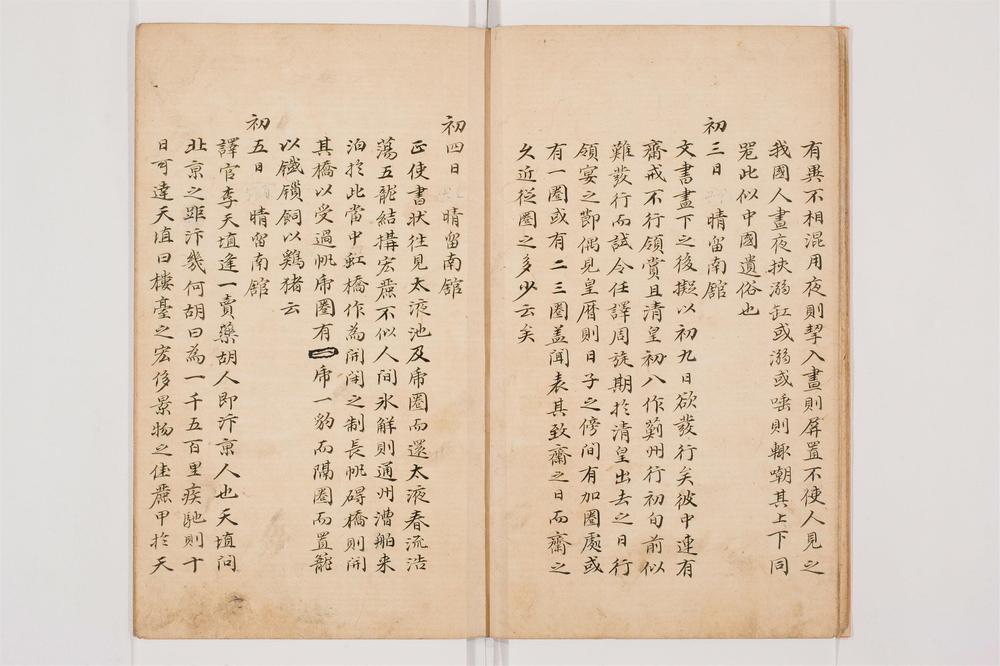 有異不相混用夜則挈入晝則屏置不使人見之
我國人晝夜挾溺缸或溺或唾則輒嘲其上下同
器此似中國遺俗也
初三日 晴留南館
文書畫下之後擬以初九日欲發行矣彼中連有
齋戒不行領賞且清皇初八作薊州行初旬前似
難發行而試令任譯周旋期於清皇出去之日行
領宴之節偶見皇曆則日子之傍間有加圈處或
有一圈或有二三圈盖聞表其致齋之日而齋之
久近從圈之多少云矣
初四日 晴留南館
正使書狀往見太液池及虎圈而還太液春流浩
蕩五龍結搆宏麗不似人間氷觧則通州漕舶来
泊於此當中虹橋作為開閉之制長帆碍橋則開
其橋以受過帆虎圈有虎一豹而隔圈而置籠
以鐵鎖飼以鷄猪云
初五日 晴留南館
譯官李天埴逢一賣藥胡人即汴京人也天埴問
北京之距汴幾何胡曰為一千五百里疾馳則十
日可達天埴曰樓臺之宏侈景物之佳麗甲於天